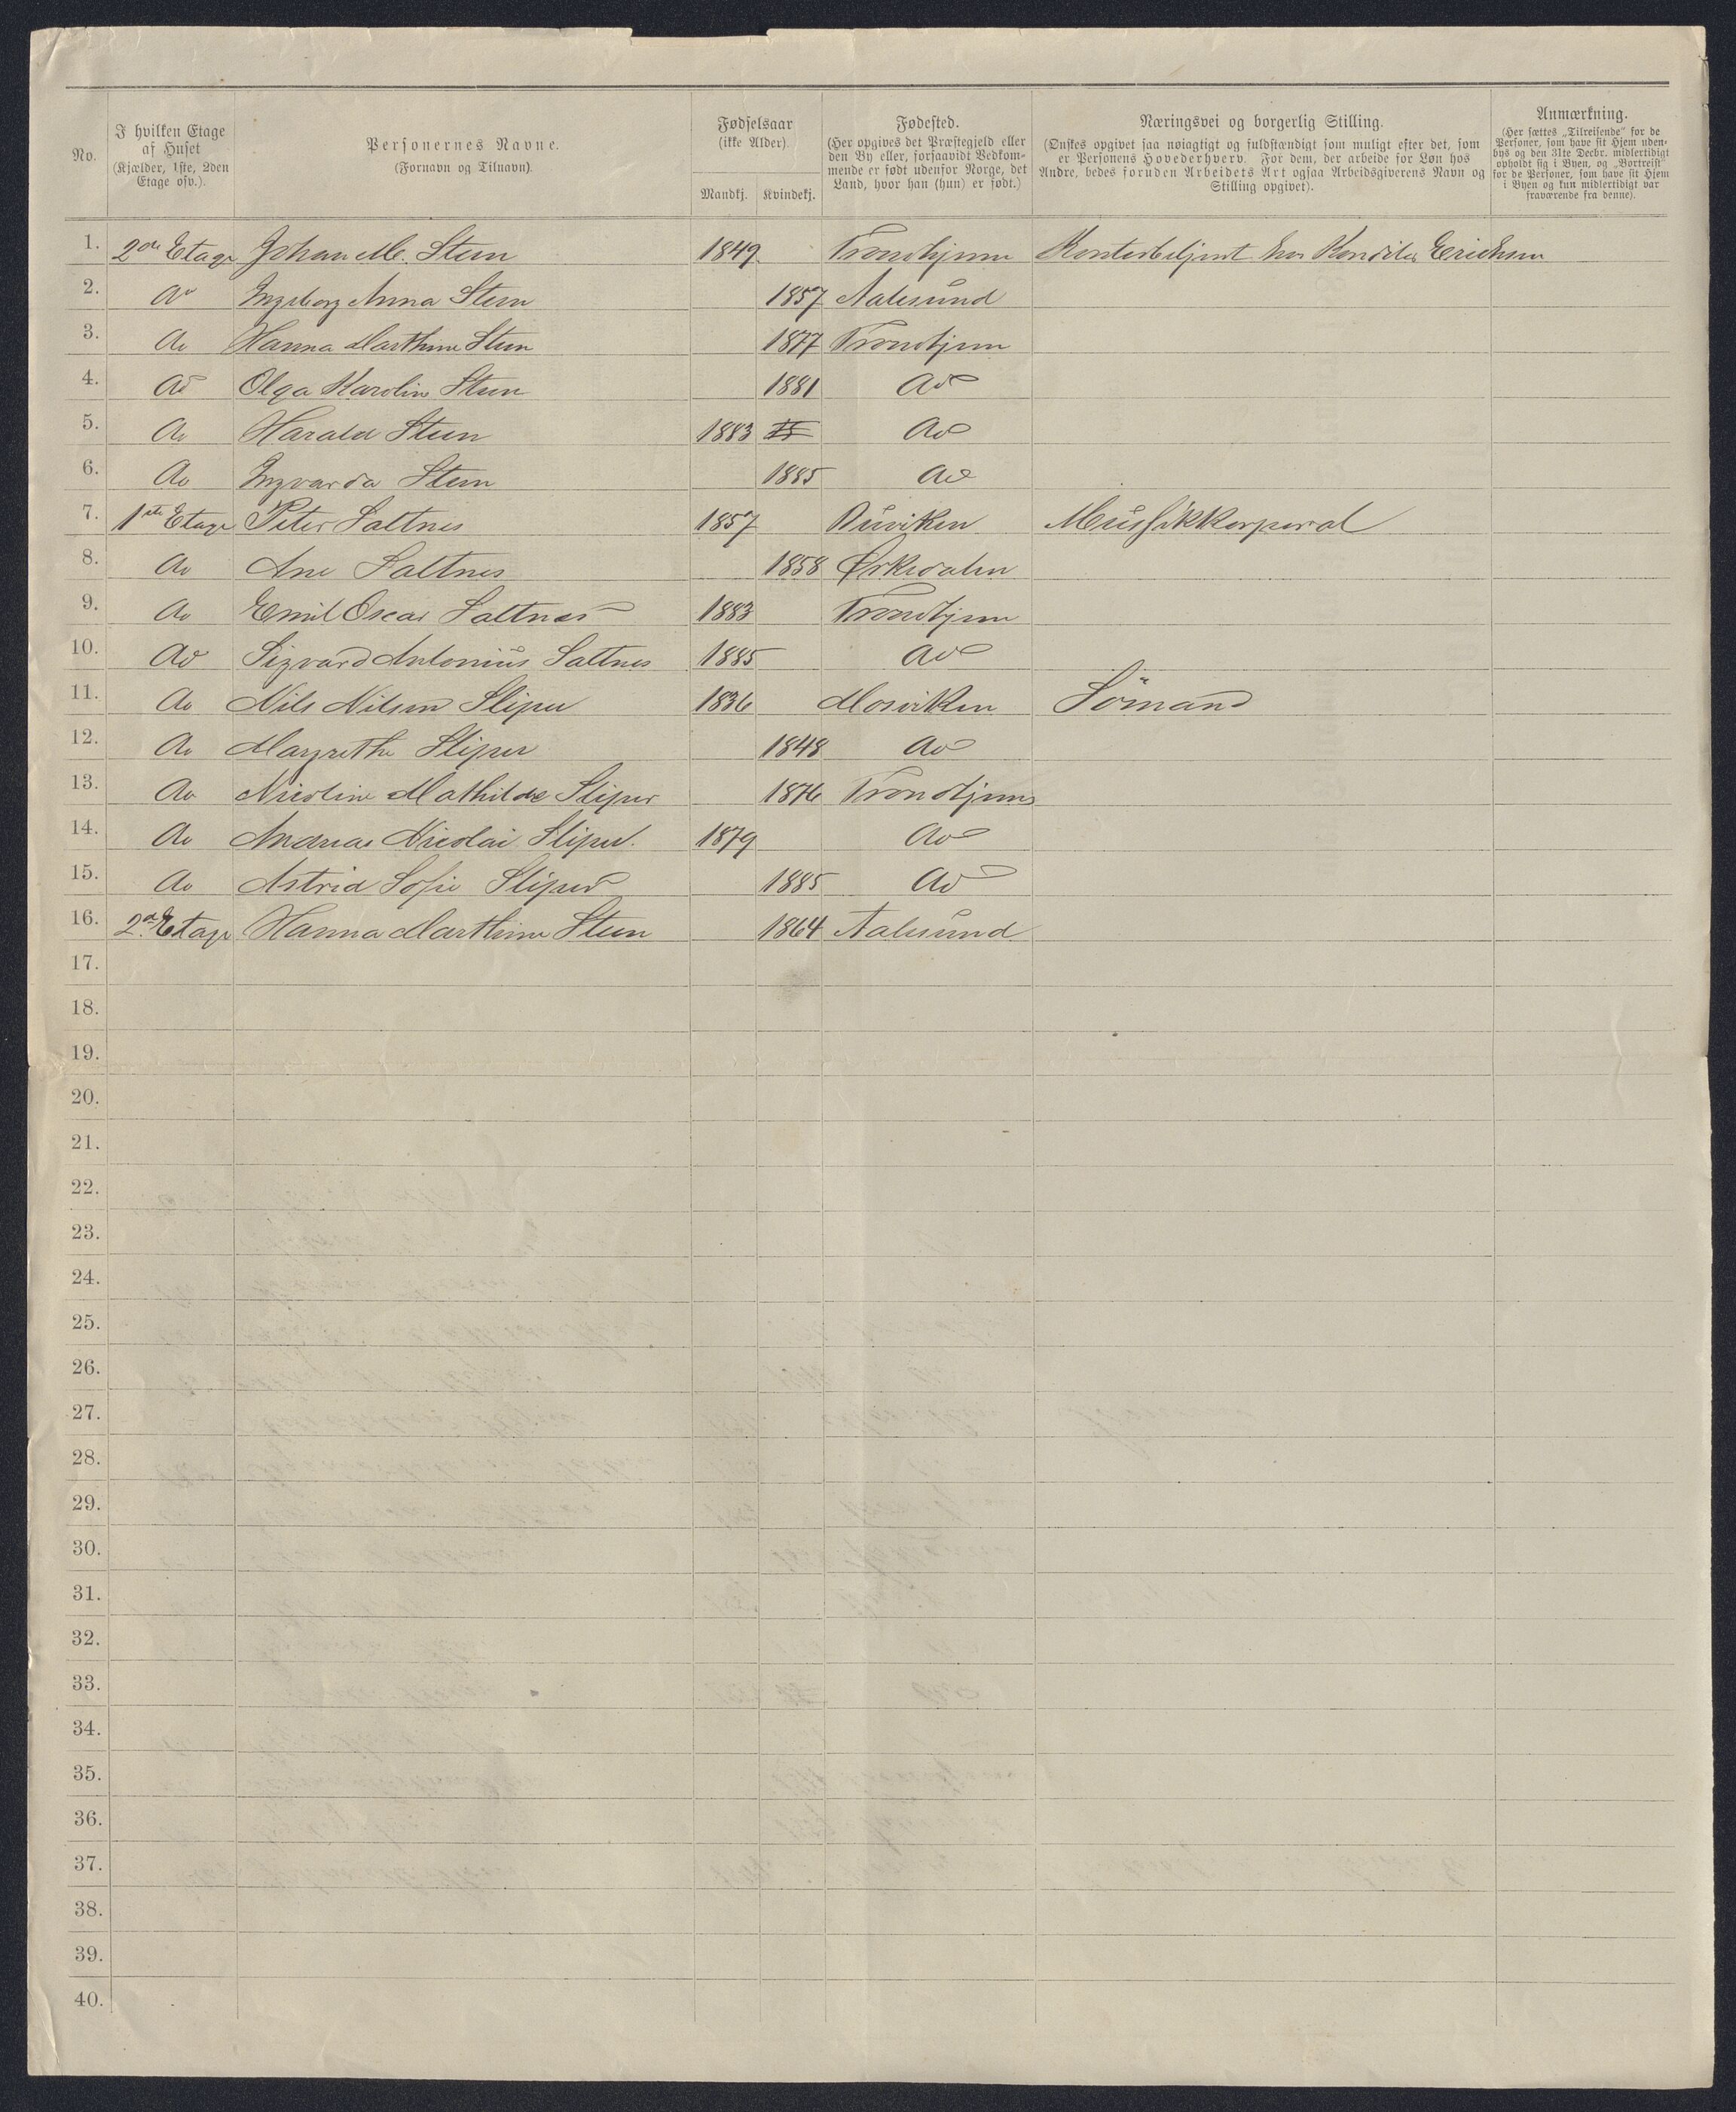 No.
I hvilken Etage af Huset (Kjælder, 1ste, 2den Etage osv.).
Personernes Navne. (Fornavn og Tilnavn).
Fødselsaar (ikke Alder). Mandkj. Kvindekj.
Fødested. (Her opgives det Præstegjeld eller den By eller, forsaavidt Vedkommende er født udenfor Norge, det Land, hvor han (hun) er født.)
Næringsvei og borgerlig Stilling. (Ønskes opgivet saa nøiagtigt og fuldstændigt som muligt efter det, som er Personens Hovederhverv. For dem, der arbeide for Løn hos Andre, bedes foruden Arbeidets Art ogsaa Arbeidsgiverens Navn og Stilling opgivet).
Anmærkning. (Her sættes „Tilreisende" for de Personer, som have sit Hjem udenbys og den 31te Decbr. midlertidigt opholdt sig i Byen, og „Bortreist" for de Personer, som have sit Hjem i Byen og kun midlertidigt var fraværende fra denne).
1. 2den Etage Johan M. Steen 1849. Trondhjem Kontorbetjent hos Konditor Erichsen
2. do Ingeborg Anna Steen 1857 Aalesund
3. do Hanna Marthine Steen 1877 Trondhjem
4. do Olga Karoline Steen 1881 do
5. do Harald Steen 1883 do
6. do Ingvarda Steen 1885 do
7. 1ste Etage Peter Saltnes 1857 Buviken Mussikkorperal
8. do Ane Saltnes 1858 Ørkedalen
9. do Emil Oscar Saltnes 1883 Trondhjem
10. do Sigvard Antonius Saltnes 1885 do
11. do Nils Nilsen Sliper 1836 Mosviken Sömand
12. do Margrethe Sliper 1848 do
13. do Nicoline Mathilde Sliper 1876 Trondhjem
14. do Andreas Nicolai Sliper. 1879 do
15. do Astrid Sofie Sliper 1885 do
16. 2d. Etage Hanna Marthine Steen 1864 Aalesund
17.
18.
19.
20.
21.
22.
23.
24.
25.
26.
27.
28.
29.
30.
31.
32.
33.
34.
35.
36.
37.
38.
39.
40.